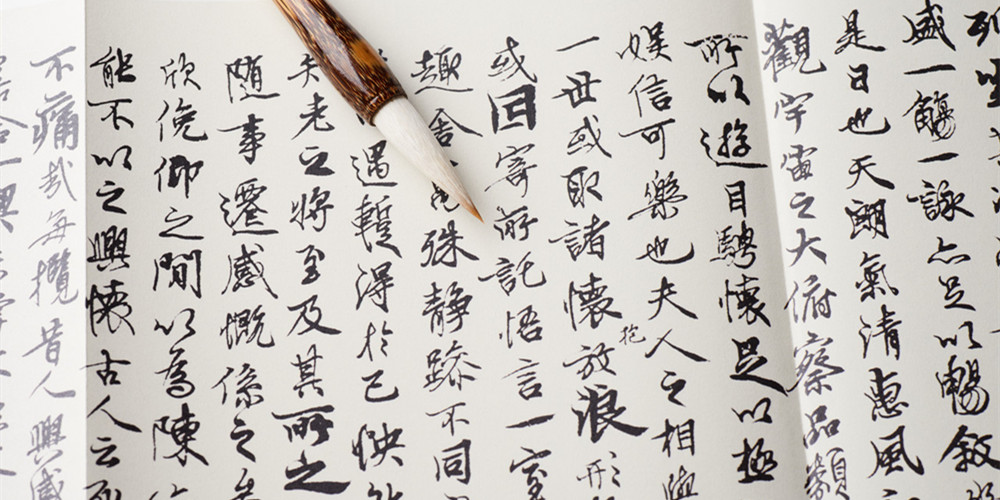 列坐
盛一觴一詠亦足以暢敘
是日也天朗氣清惠風
觀宇宙之大俯察品類
所以遊目騁懷足以極
娛信可樂也夫人之相與
一世或取諸懷抱放浪形
或因寄所託悟言一室
趣舍殊靜躁不同
遇蹔得於己怏
老之將至及其所之
隨事遷感慨係之矣
欣俛仰之閒以為陳
能不以之興懷古人云死
不痛哉每攬昔人興感
合一